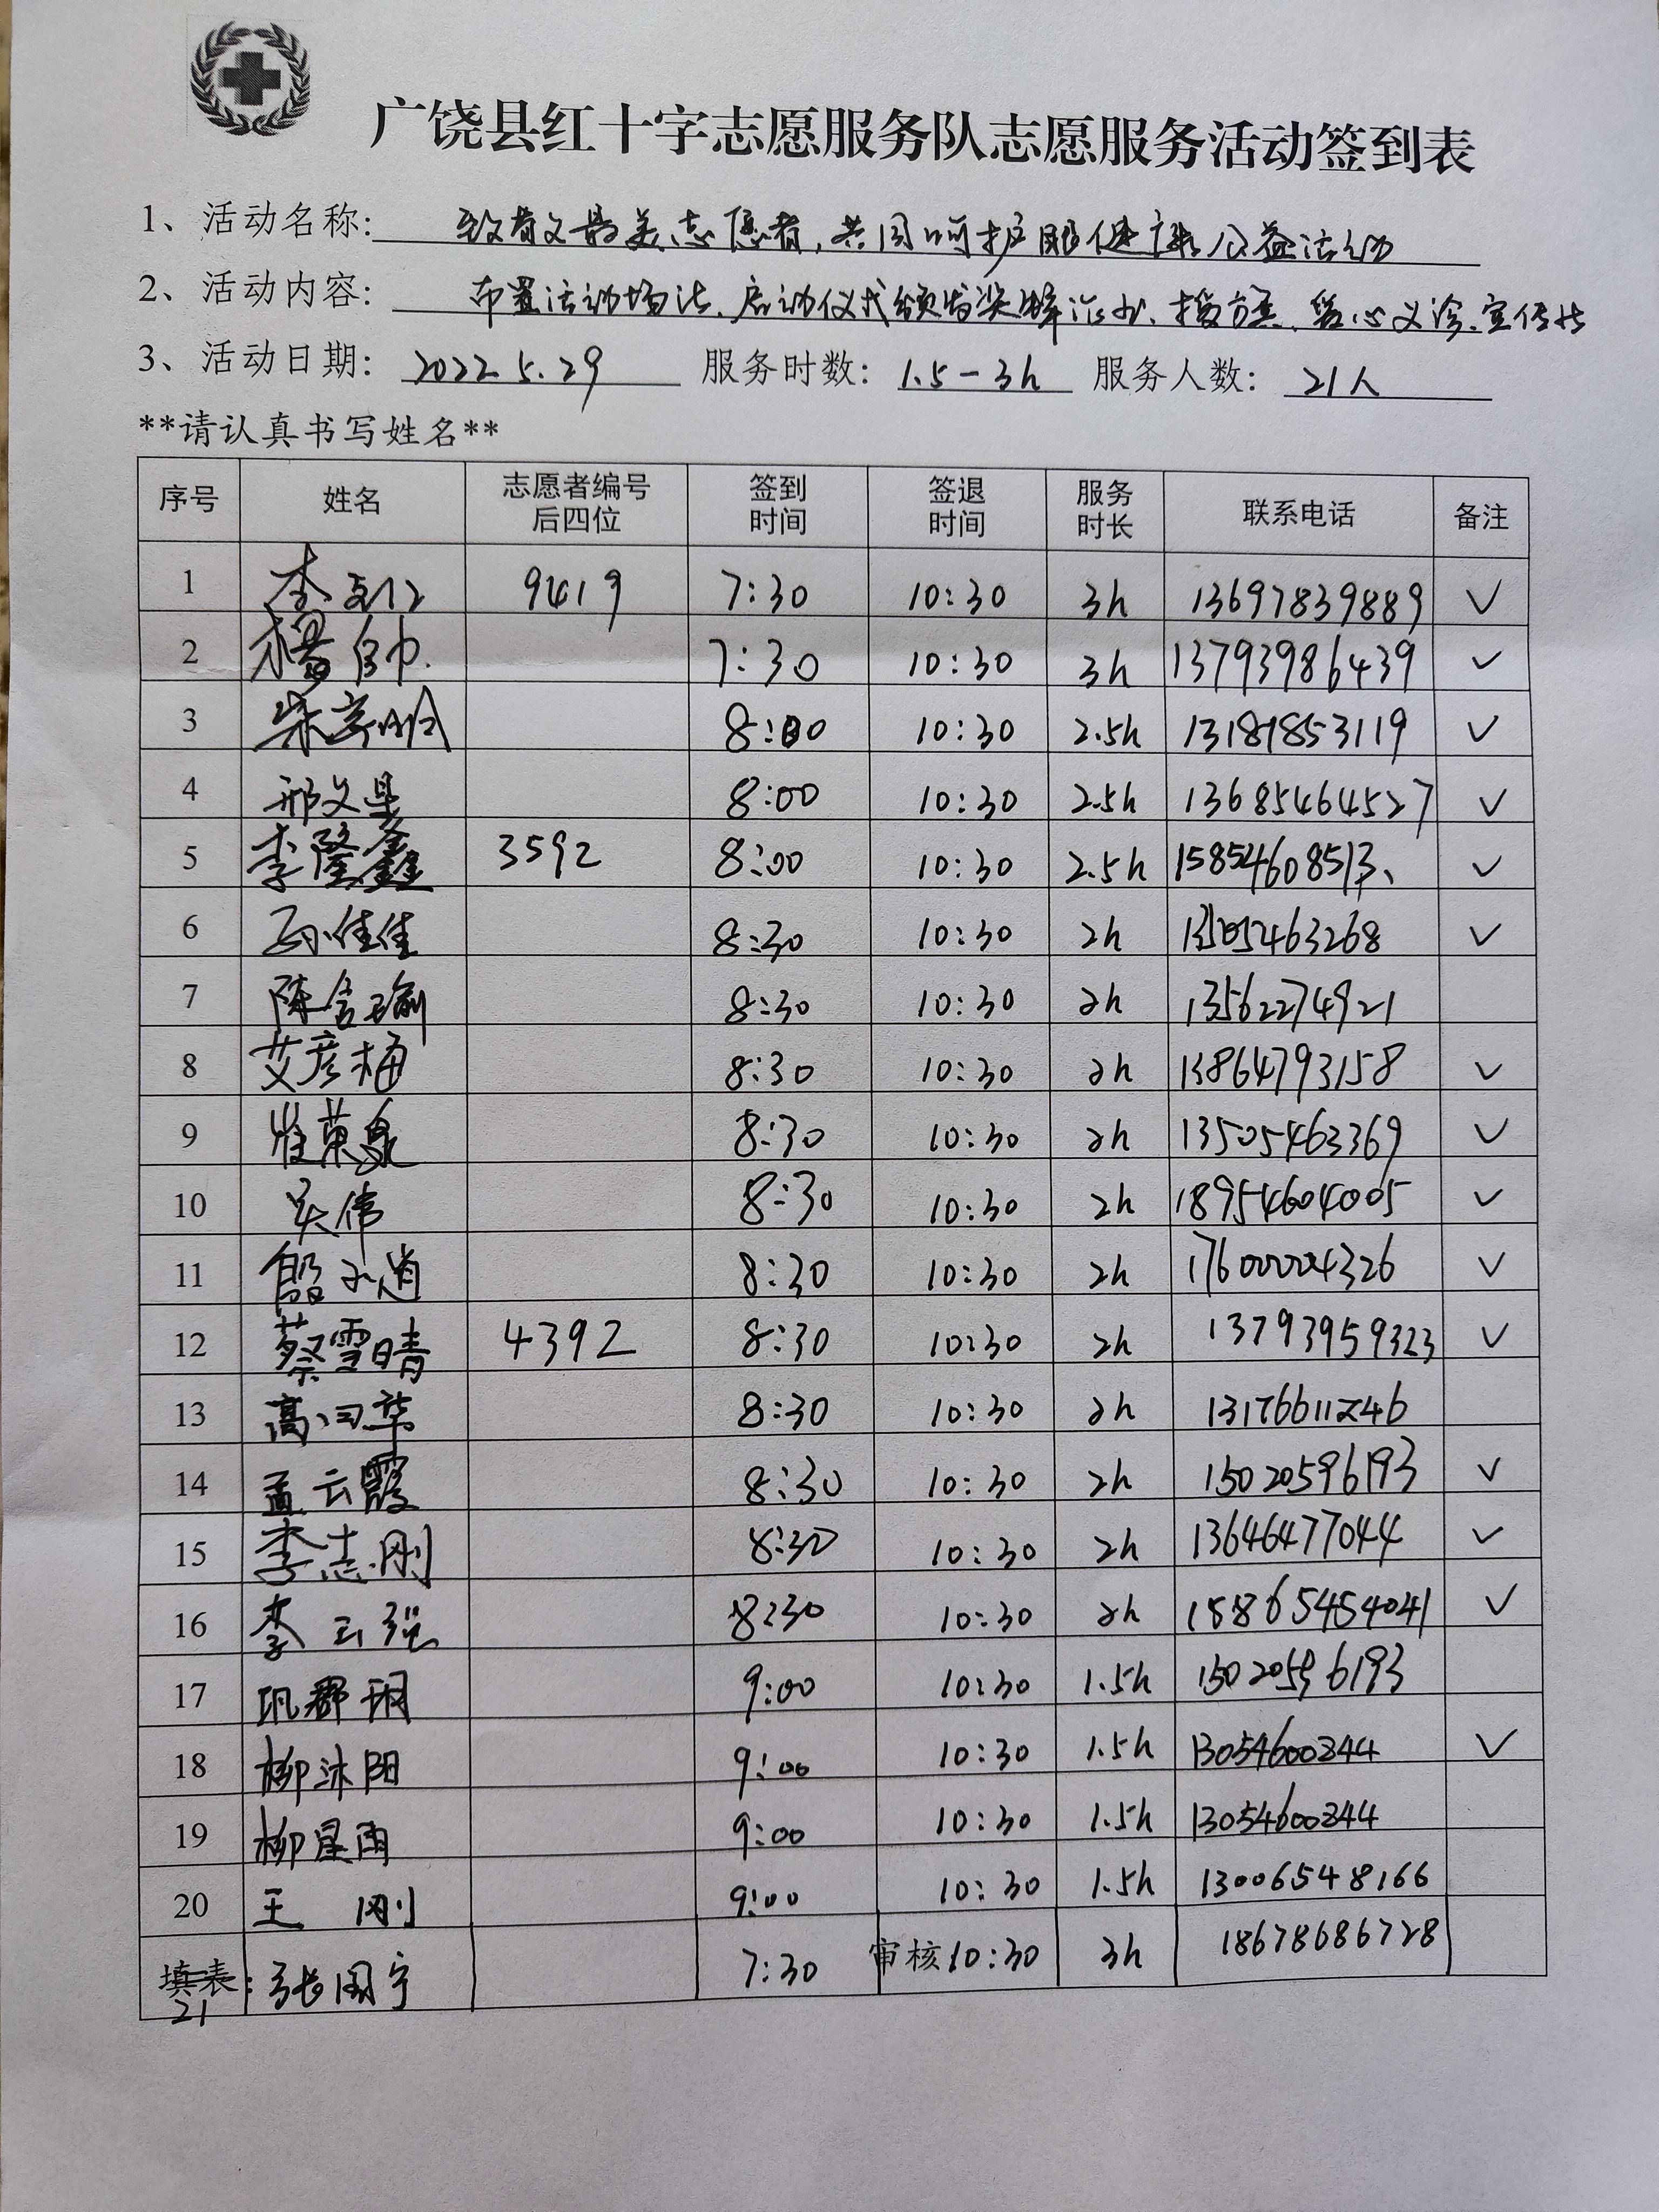 广饶县红十字志愿服务队志愿服务活动签到表
1、活动名称: 致敬最美志愿者,共同呵护眼健康公益活动
2、活动内容: 布置活动场法、启动仪式颁发奖牌、授旗、爱心义诊、宣传站
3、活动日期: 2022.5.29 服务时数: 1.5-3h 服务人数: 21人
**请认真书写姓名**
序号 姓名 志愿者编号后四位 签到时间 签退时间 服务时长 联系电话 备注
1 李 9419 7:30 10:30 3h 13697839889 ✓
2 杨帅 7:30 10:30 3h 13793986439 ✓
3 8:00 10:30 2.5h 13181853119 ✓
4 邢文昊 8:00 10:30 2.5h 13685464527 ✓
5 李隆鑫 3592 8:00 10:30 2.5h 15854608513 ✓
6 孙佳佳 8:30 10:30 2h 13505463268 ✓
7 陈含瑜 8:30 10:30 2h 13562274921
8 艾彦梅 8:30 10:30 2h 13864793158 ✓
9 崔英泉 8:30 10:30 2h 13505463369 ✓
10 吴伟 8:30 10:30 2h 18954604005 ✓
11 8:30 10:30 2h 17600004326 ✓
12 蔡雪晴 4392 8:30 10:30 2h 13793959323 ✓
13 高 华 8:30 10:30 2h 13176611246
14 孟云霞 8:30 10:30 2h 15020596193 ✓
15 李志刚 8:30 10:30 2h 13646477044 ✓
16 李云强 8:30 10:30 2h 158865454041 ✓
17 巩郡珂 9:00 10:30 1.5h 15020596193
18 柳沐阳 9:00 10:30 1.5h 13054600244 ✓
19 柳星雨 9:00 10:30 1.5h 13054600244
20 王刚 9:00 10:30 1.5h 13006548166
填表: 21 张国宁 7:30 审核 10:30 3h 18678686728